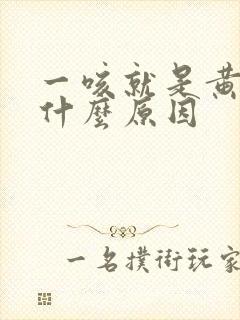 一咳就是黃
什麼原因
一名撲街玩家